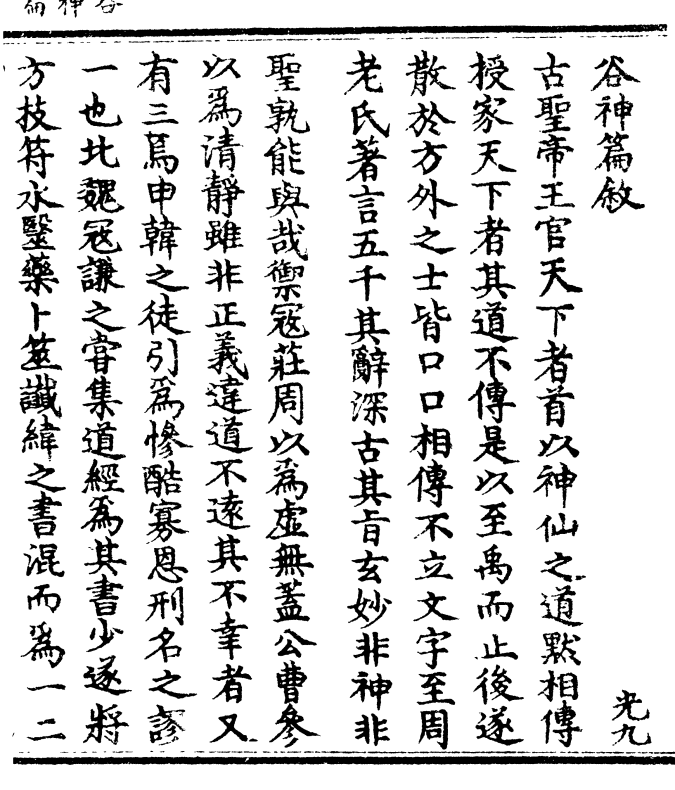 谷神篇敘
光九
古聖帝王官天下者首以神仙之道默相傳
授家天下者其道不傳是以至禹而止後遂
散於方外之士皆口口相傳不立文字至周
老氏著言五千其辭深古其旨玄妙非神非
聖孰能與哉禦寇莊周以為虛無蓋公曹參
以為清靜雖非正義違道不遠其不幸者又
有三焉申韓之徒引為慘酷寡恩刑名之謬
一也北魏寇謙之嘗集道經為其書少遂將
方技符水醫藥卜筮讖緯之書混而為一二